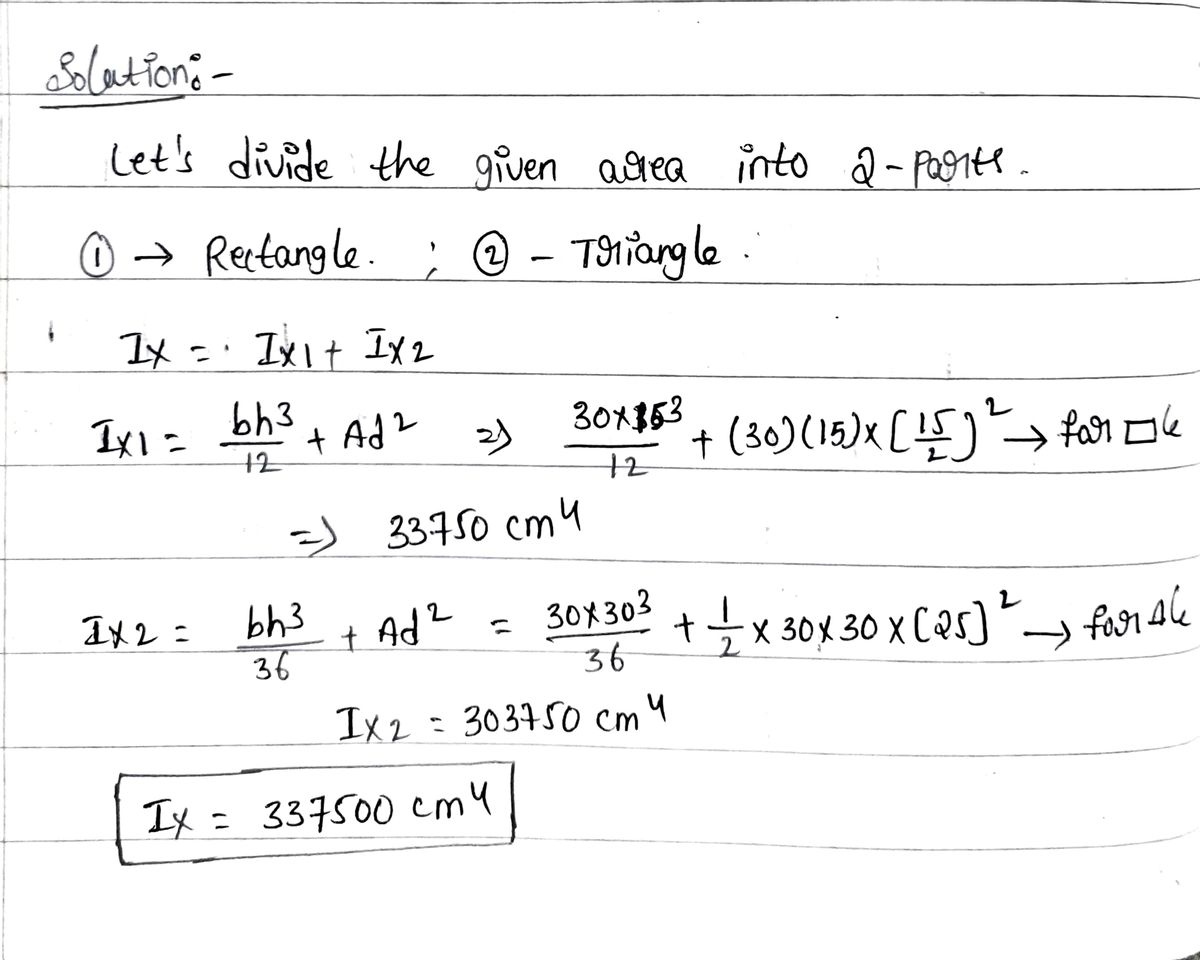 Solution:-
Let's divide the given area into 2-Parts.
① → Rectangle. ; ② - Triangle.
Ix = Ix1 + Ix2
Ix1 = bh³/12 + Ad² ⇒ 30×15³/12 + (30)(15)×[15/2]² → for □le
⇒ 33750 cm⁴
Ix2 = bh³/36 + Ad² = 30×30³/36 + 1/2 × 30×30×[25]² → for Δle
Ix2 = 303750 cm⁴
Ix = 337500 cm⁴